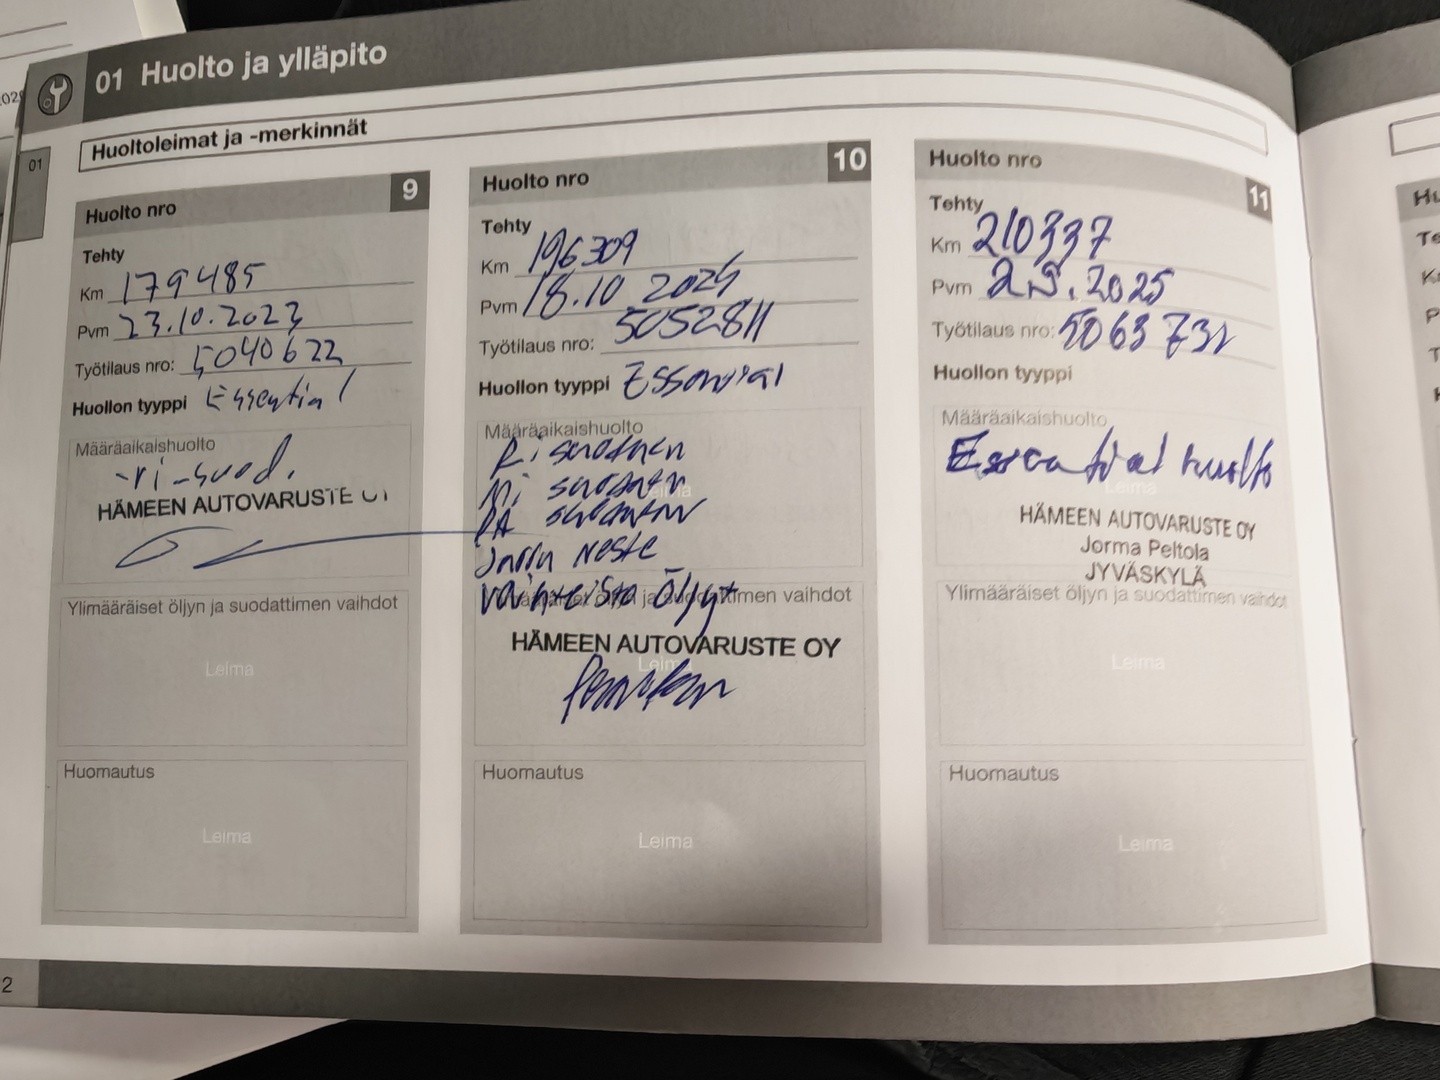 01 Huolto ja ylläpito
01
Huoltoleimat ja -merkinnät
Huolto nro 9
Tehty
Km 179485
Pvm 23.10.2023
Työtilaus nro: 5040622
Huollon tyyppi Essential
Määräaikaishuolto
-ri-suod.
HÄMEEN AUTOVARUSTE
Ylimääräiset öljyn ja suodattimen vaihdot
Leima
Huomautus
Leima
Huolto nro 10
Tehty
Km 196309
Pvm 18.10 2024
Työtilaus nro: 5052811
Huollon tyyppi Essential
Määräaikaishuolto
Ri suodatin
Mi suodatin
PA suodatin
Jarru neste
Vaihteisto Öljyt
suodattimen vaihdot
HÄMEEN AUTOVARUSTE OY
Leima
Huomautus
Leima
Huolto nro 11
Tehty
Km 210337
Pvm 2.9.2025
Työtilaus nro: 5063732
Huollon tyyppi
Määräaikaishuolto
Essential huolto
Leima
HÄMEEN AUTOVARUSTE OY
Jorma Peltola
JYVÄSKYLÄ
Ylimääräiset öljyn ja suodattimen vaihdot
Leima
Huomautus
Leima
2